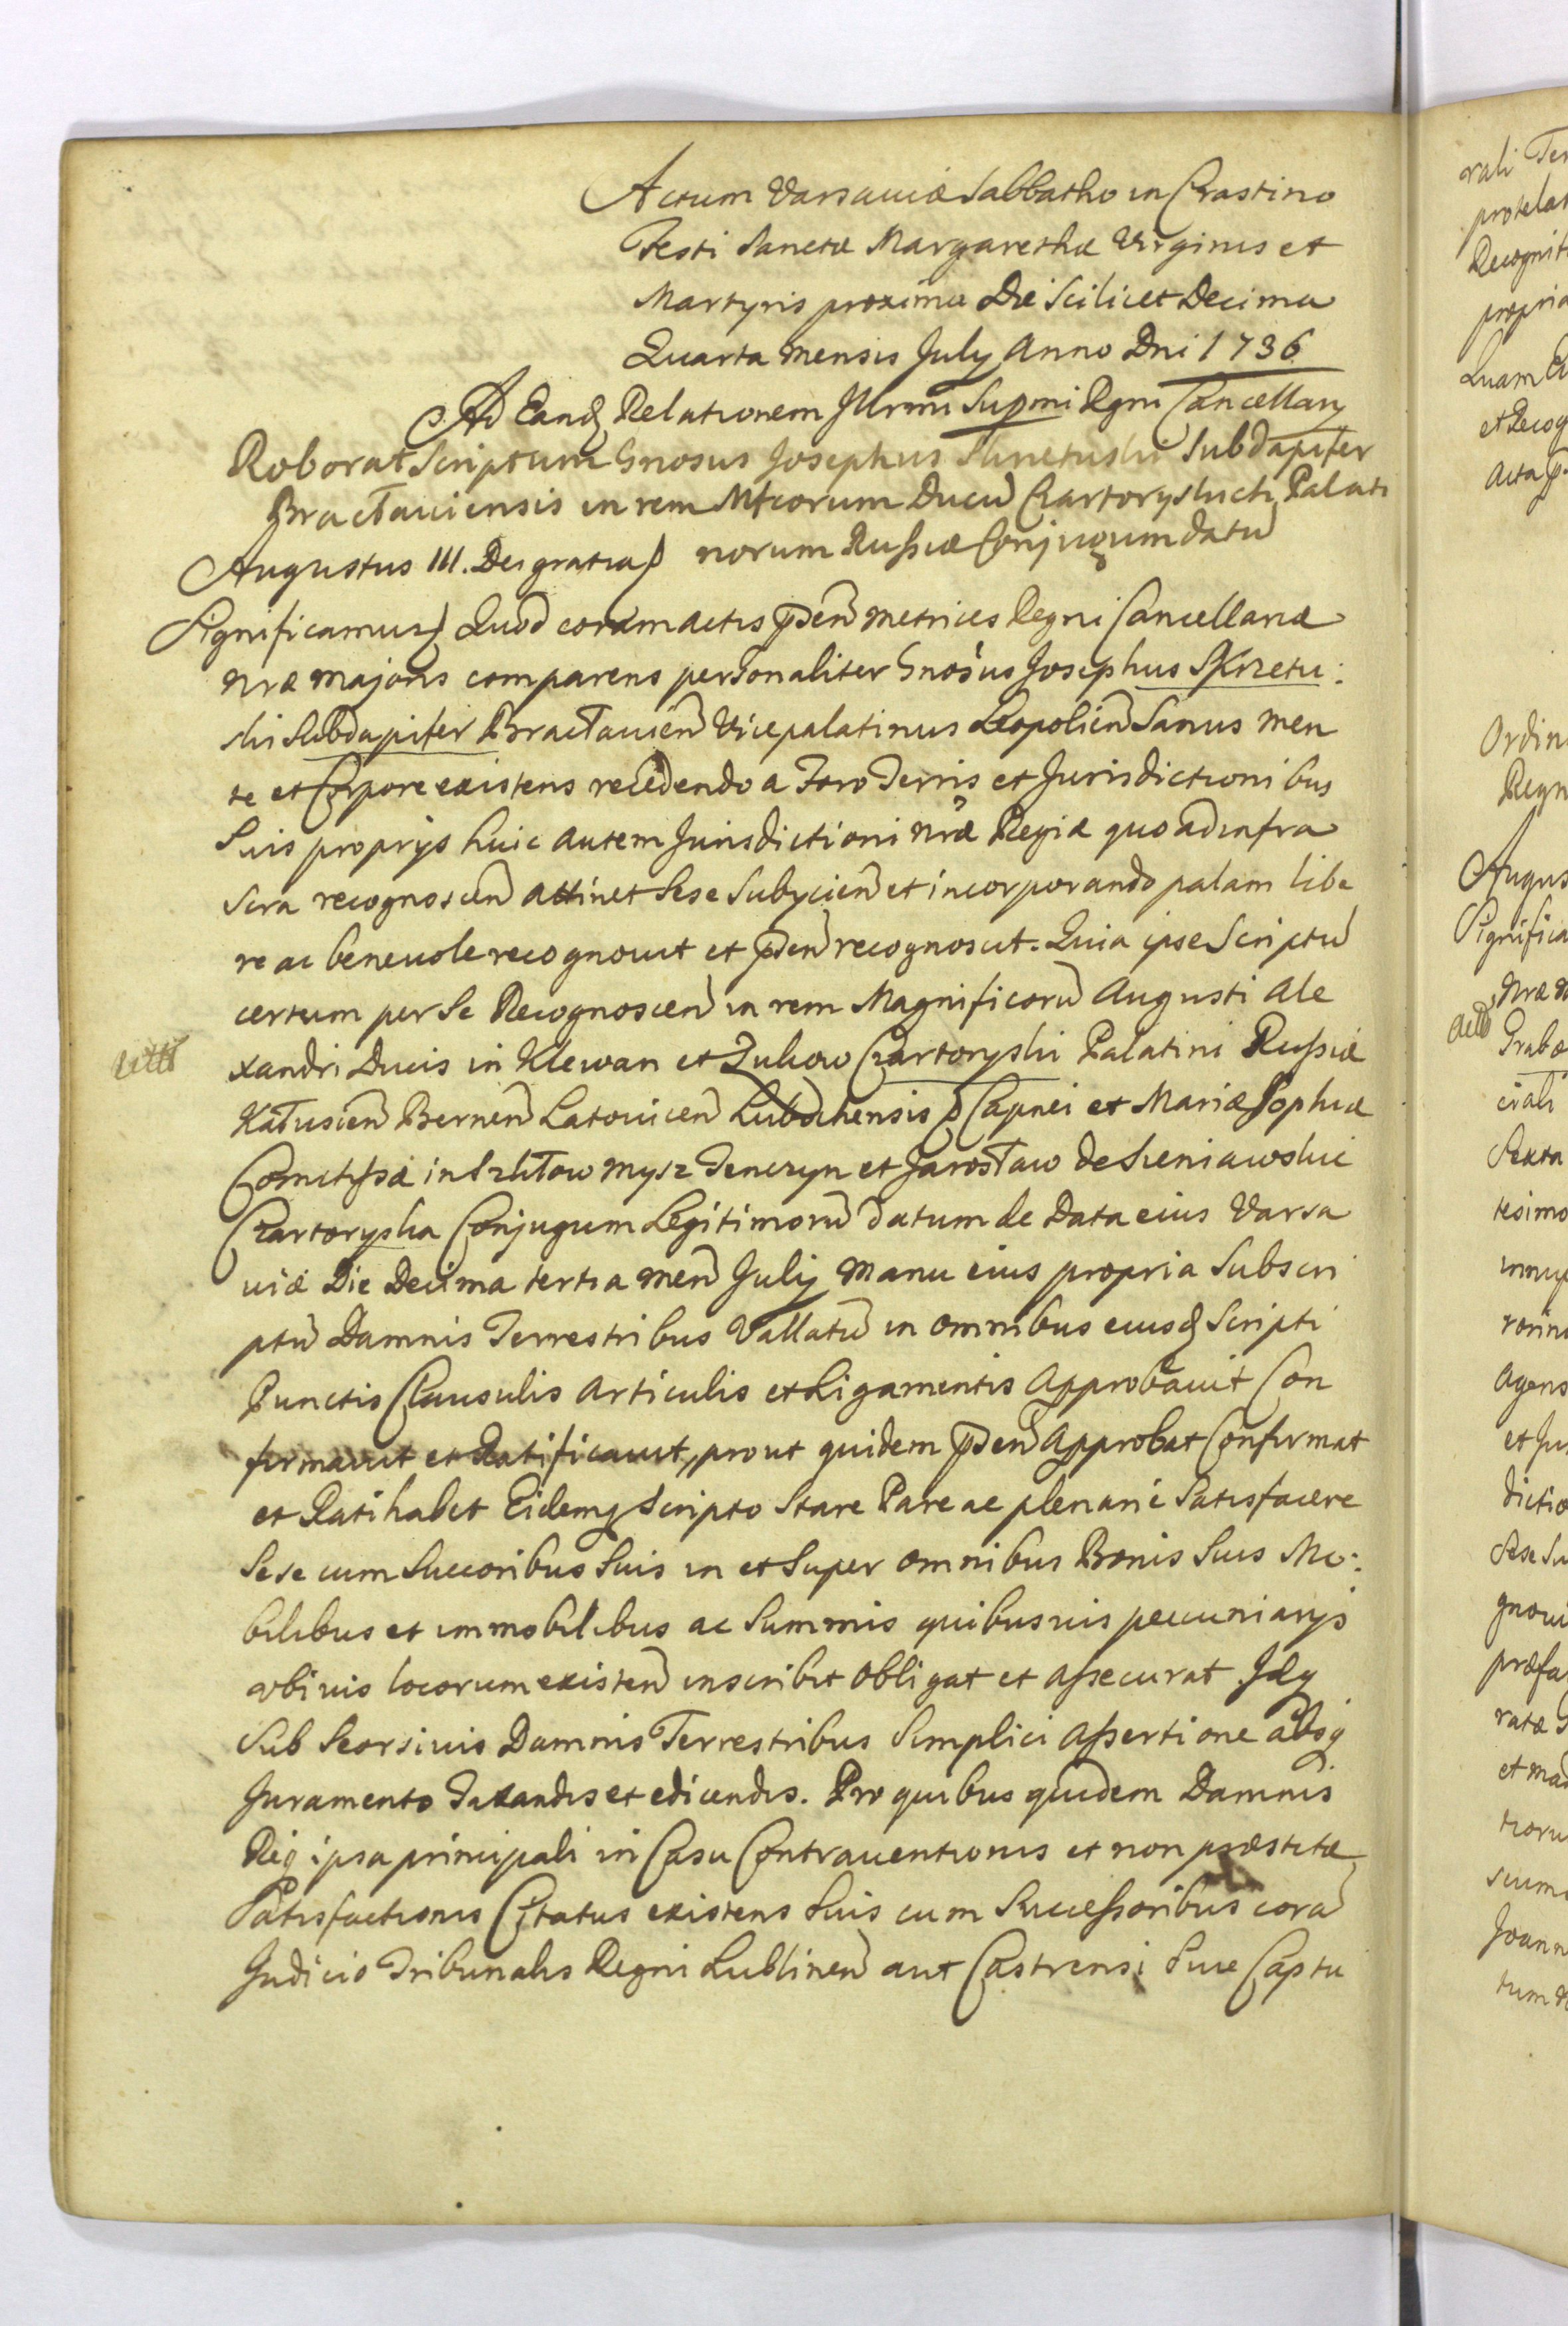 Actum Varsaviæ Sabbatho in Crastino
Festi Sanctæ Margarethæ Virginis et
Martyris proxima Die Scilicet Decima
Quarta mensis July Anno Dni 1736
Ad Eandꝫ Relationem Illrmi Supmi Rgni Cancellary
Roborat Scriptum Gnosus Josephus Skrzetuski Subdapifer
Bracłaviensis in rem Mfcorum Ducū Czartoryskich Palati
norum Russiæ Conjugum datū
Augustus III. Dei gratia
Significamus Quod coram actis p̄sen̄ metrices Regni Cancellariæ
nræ majoris comparens personaliter Gnosus Josephus Skrzetu:
ski Subdapifer Bracłavien̄ Vicepalatinus Leopolien̄ Sanus men
te et Corpore existens recedendo a Foro Terris et Jurisdictionibus
Suis proprijs huic autem Jurisdictioni nræ Regiæ quo ad infra
scra recognoscen̄ attinet Sese Subijcien̄ et incorporando palam libe
re ac benevole recognovit et p̄sen̄ recognoscit. Quia ipse Scriptū
certum per Se Recognoscen̄ in rem Magnificorū Augusti Ale
xandri Ducis in Klewan et Zukow Czartoryski Palatini Russiæ
Kałusien̄ Bernen̄ Latovicen̄ Lubochensis Capnei et Mariæ Sophiæ
Comitissæ in Szkłow Mysz Tenczyn et Jarosław de Sieniawskie
Czartoryska Conjugum Legitimorū datum de Data eius Varsa
viæ Die Decima tertia men̄ July manu eius propria Subscri
ptū Damnis Terrestribus Vallatū in omnibus eiusdꝫ Scripti
Punctis Clausulis Articulis et Ligamentis Approbavit Con
firmavit et Ratificavit, prout quidem p̄sen̄ Approbat Confirmat
et Ratihabet Eidemqꝫ Scripto Stare Parere ac plenarie Satisfacere
Sese cum Succoribus Suis in et Super omnibus Bonis Suis Mo:
bilibus et immobilibus ac Summis quibusvis pecuniarys
ubivis locorum existen̄ inscribit obligat et assecurat Idqꝫ
Sub Seorsivis Damnis Terrestribus Simplici assertione absqꝫ
Juramento Taxandis et edicendis. Pro quibus quidem Damnis
Reqꝫ ipsa principali in Casu Contraventionis et non præstitæ
Satisfactionis Citatus existens Suis cum Successoribus corā
Judicio Tribunalis Regni Lublinen̄ aut Castrensi Sive Captu
rali Ter
protelat
Recogniti
propria
Quam
et Recog
acta
Ordin
Regn
Augus
Significa
nræ
Grabo
ciali
Sexta
tesimo
Agens
et Ju
dictio
Sese Su
gnovi
præfa
ratæ
et ma
Joann
tum